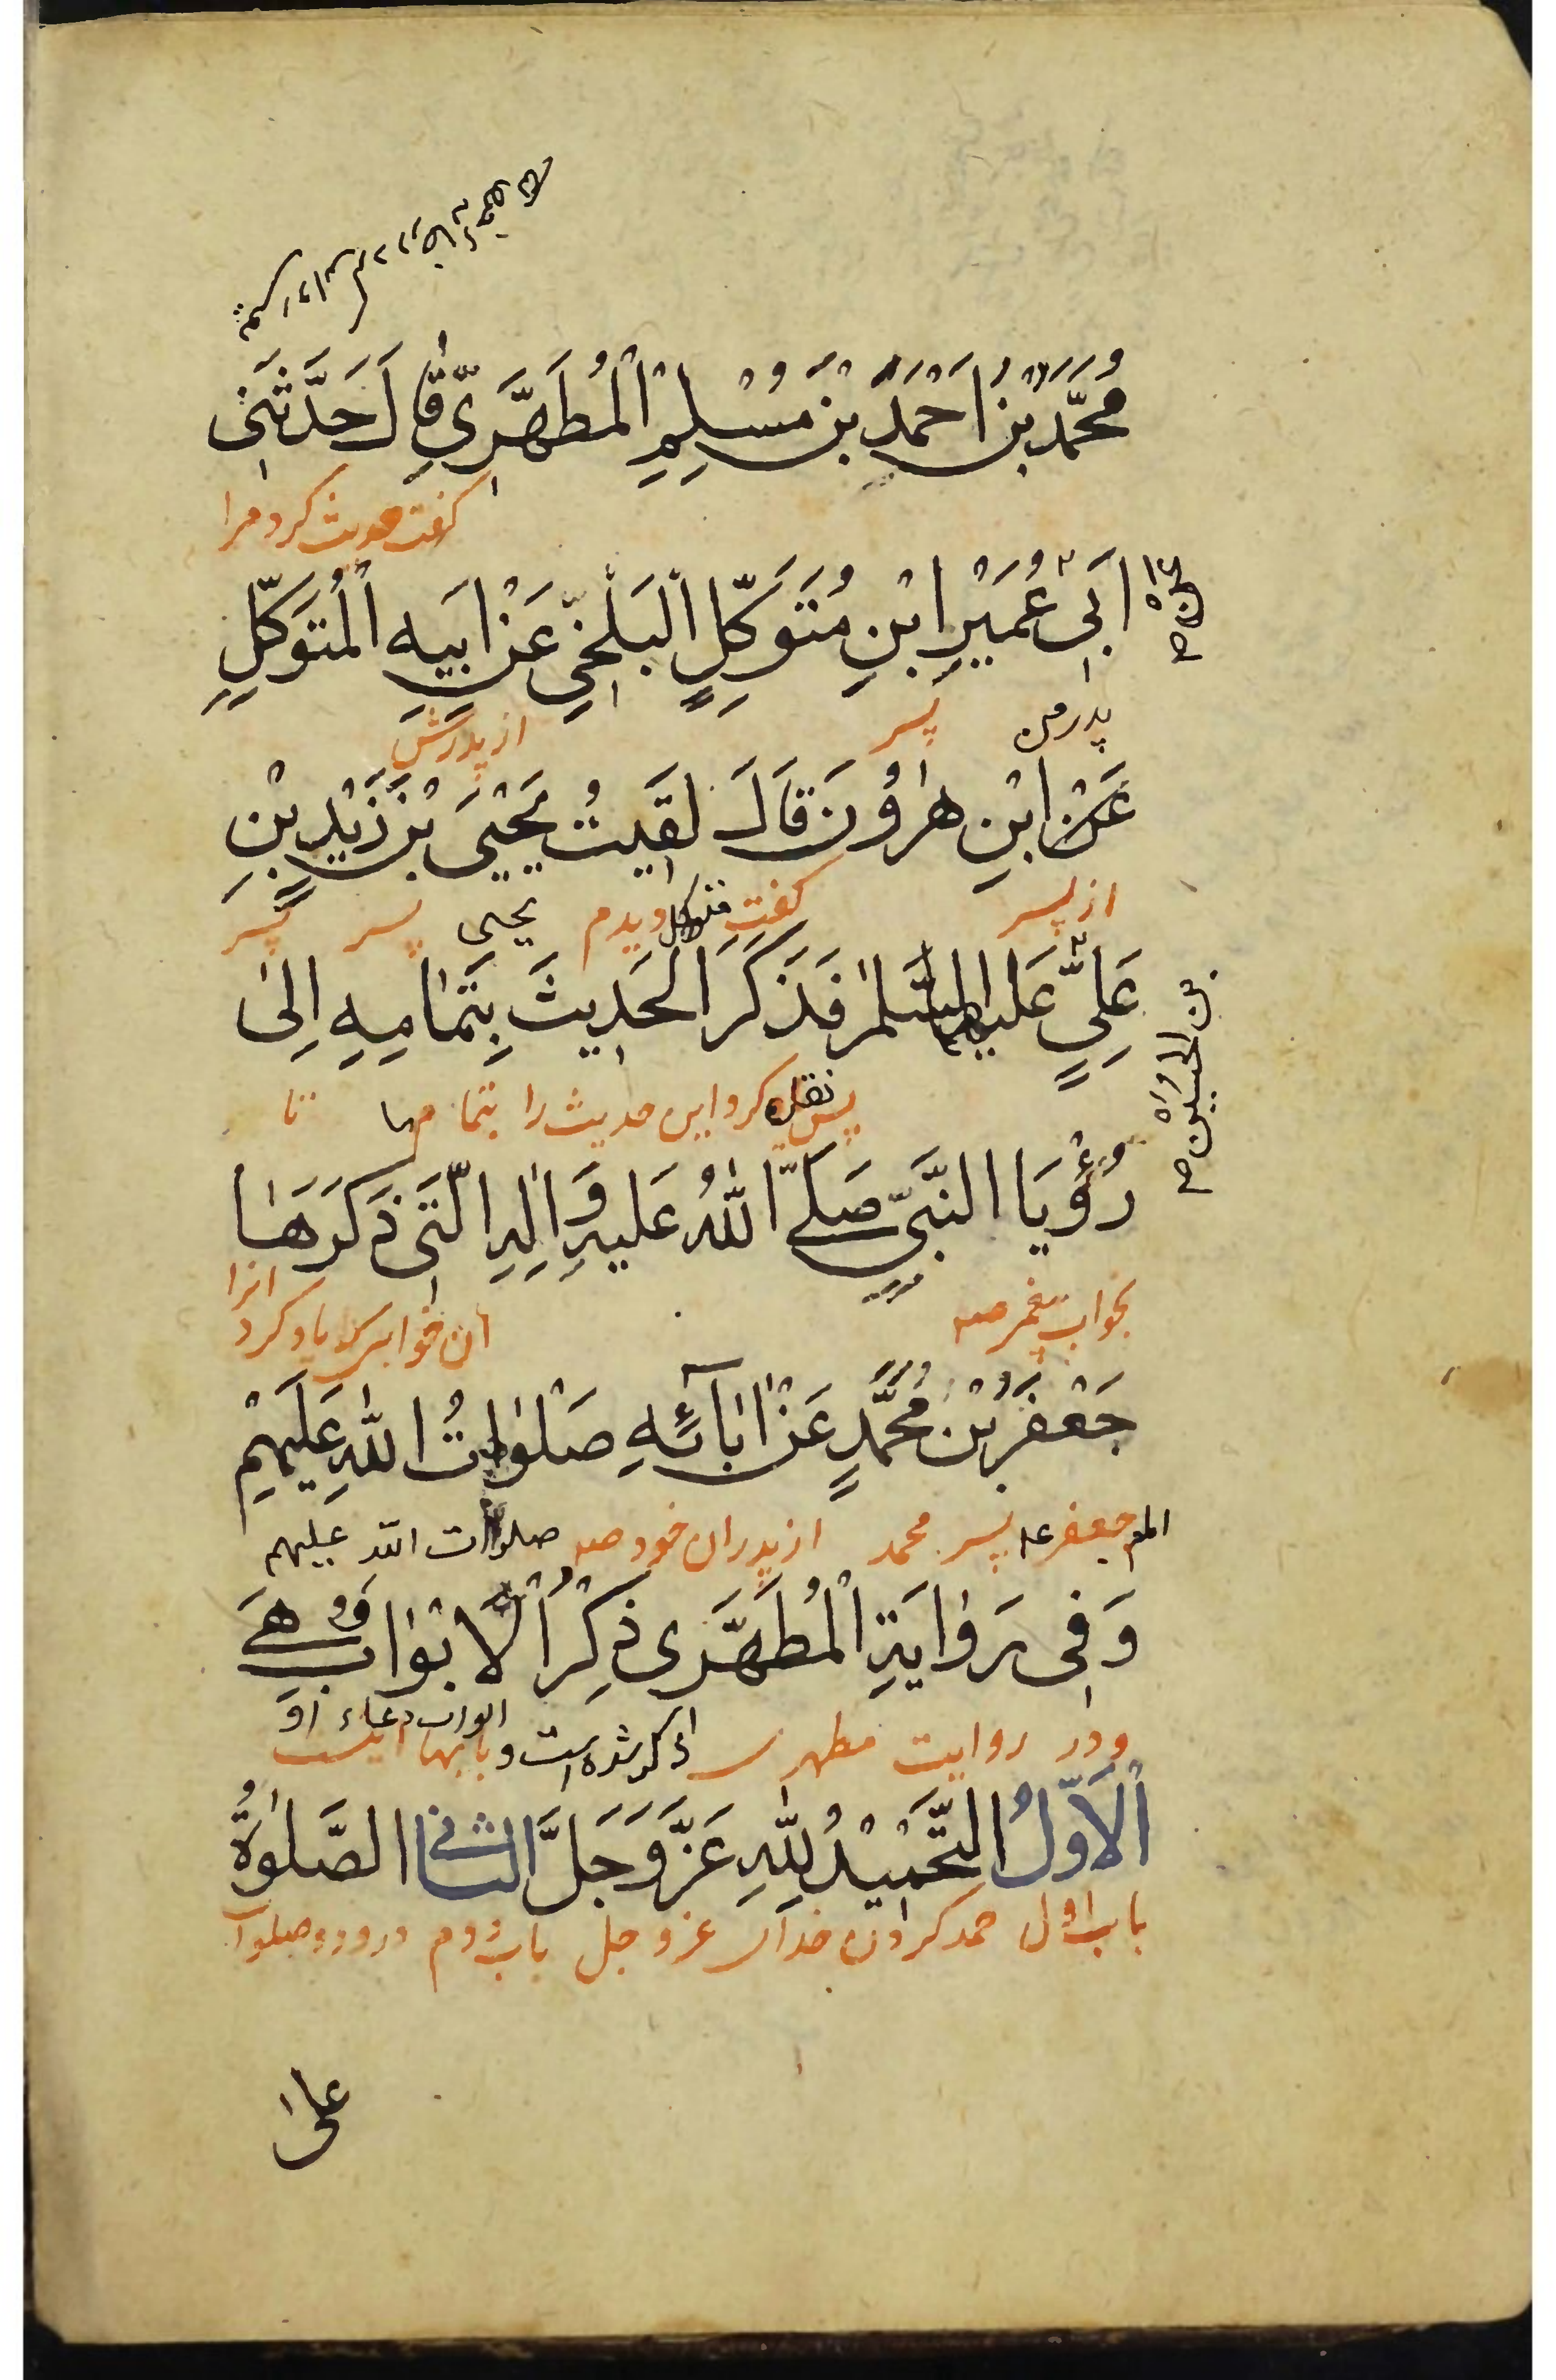 مُحَمَّدُ بْنُ اَحْمَدَ بْنِ مُسْلِمِ الْمُطَهَّرِيِّ قَالَ حَدَّثَنِي
گفت حدیث کرد مرا
اَبِي عُمَيْرِ ابْنِ مُتَوَكِّلٍ الْبَلْخِيِّ عَنْ اَبِيهِ الْمُتَوَكِّلِ
پدر من پسر از پدرش
عَنْ ابْنِ هٰرُونَ قَالَ لَقِيتُ يَحْيَى بْنَ زَيْدِ بْنِ
از پسر گفت متوکل دیدم یحیی پسر پسر
عَلِيٍّ عَلَيْهِمَا السَّلٰمُ فَذَكَرَ الْحَدِيثَ بِتَمَامِهِ اِلىٰ
بن الحُسَيْن صح
پس نقل کرد این حدیث را بتمامها تا
رُؤْيَا النَّبِيِّ صَلَّى اللهُ عَلَيهِ وَاٰلِهِ الَّتِي ذَكَرَهَا
بخواب پیغمبر صه آن خوابی که یاد کرد انرا
جَعْفَرُ بْنُ مُحَمَّدٍ عَنْ اٰبَآئِهِ صَلَوٰاتُ اللهِ عَلَيْهِمْ
امام جعفر عه پسر محمد از پدران خود صه صلوات الله علیهم
وَفِي رِوَايَةِ الْمُطَهَّرِى ذِكْرُ الْاَبْوَابِ وَهِيَ
ودر روایت مطهری ذکر شده است ابواب دعاء او و بابها اینست
اَلْاَوَّلُ التَّحْمِيْدُ لِلّٰهِ عَزَّ وَجَلَّ الثَّانِي الصَّلوٰةُ
باب اول حمد کردن خدای عز و جل باب دوم درود و صلوات
على